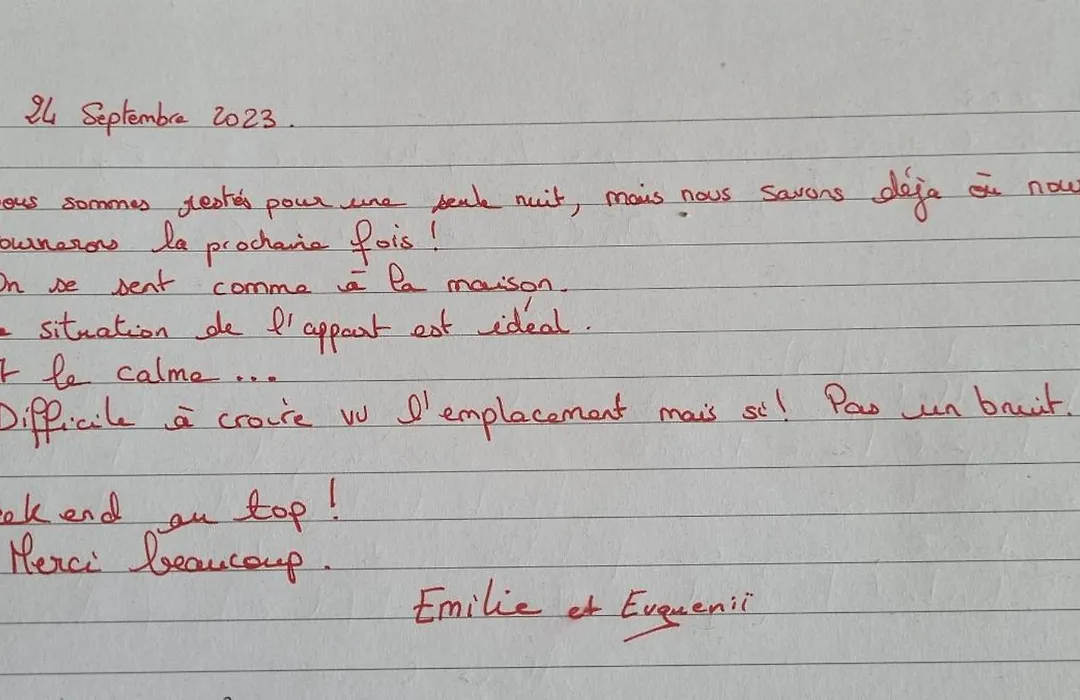 24 Septembre 2023.
ous sommes restés pour une seule nuit, mais nous savons déja où nous
ournerons la prochaine fois !
On se sent comme à la maison.
situation de l'appart est idéal.
le calme ...
Difficile à croire vu l'emplacement mais si! Pas un bruit.
ek end au top !
Merci beaucoup.
Emilie et Evguenii